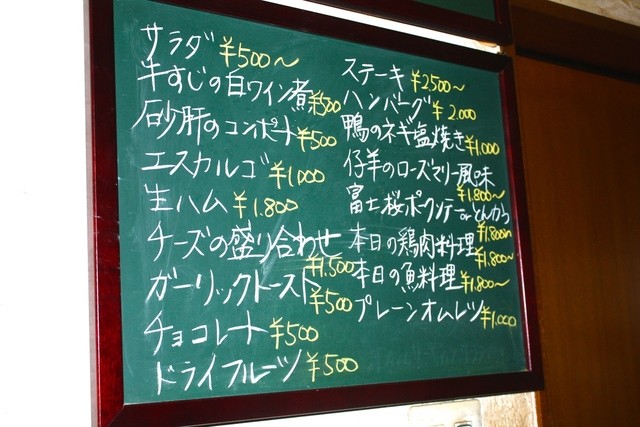 サラダ ¥500〜
牛すじの白ワイン煮 ¥500
砂肝のコンポート ¥500
エスカルゴ ¥1,000
生ハム ¥1.800
チーズの盛り合わせ ¥1,500
ガーリックトースト ¥500
チョコレート ¥500
ドライフルーツ ¥500
ステーキ ¥2,500〜
ハンバーグ ¥2.000
鴨のネギ塩焼き ¥1,000
仔羊のローズマリー風味 ¥1.800〜
富士桜ポークソテー or とんかつ ¥1.800〜
本日の鶏肉料理 ¥1.800〜
本日の魚料理 ¥1.800〜
プレーンオムレツ ¥1.000